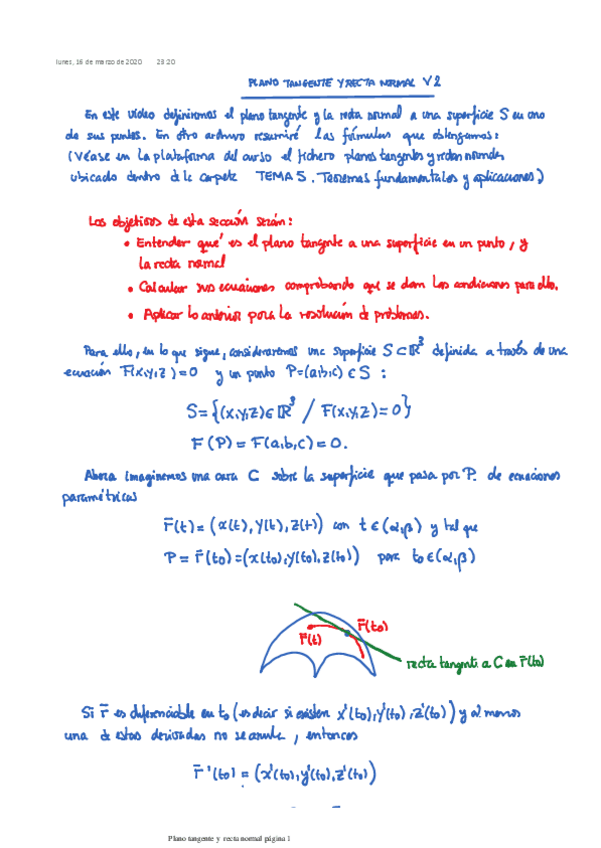 lunes, 16 de marzo de 2020 23:20
PLANO TANGENTE Y RECTA NORMAL V2
En este vídeo definiremos el plano tangente y la recta normal a una superficie S en uno
de sus puntos. En otro archivo resumiré las fórmulas que obtengamos:
(Véase en la plataforma del curso el fichero planos tangentes y rectas normales
ubicado dentro de la carpeta TEMA 5. Teoremas fundamentales y aplicaciones)
Los objetivos de esta sección serán:
• Entender qué es el plano tangente a una superficie en un punto, y
la recta normal
• Calcular sus ecuaciones comprobando que se dan las condiciones para ello.
• Aplicar lo anterior para la resolución de problemas.
Para ello, en lo que sigue, consideraremos una superficie S⊂ℝ³ definida a través de una
ecuación F(x,y,z)=0 y un punto P=(a,b,c) ∈ S :
S={(x,y,z)∈ℝ³ / F(x,y,z)=0}
F(P) = F(a,b,c) = 0.
Ahora imaginemos una curva C sobre la superficie que pasa por P. de ecuaciones
paramétricas
r̄(t) = (x(t), y(t), z(t)) con t ∈ (α,β) y tal que
P = r̄(t₀) = (x(t₀), y(t₀), z(t₀)) para t₀∈(α,β)
r̄(t₀)
r̄(t)
recta tangente a C en r̄(t₀)
Si r̄ es diferenciable en t₀ (es decir si existen x'(t₀), y'(t₀), z'(t₀)) y al menos
una de estas derivadas no se anula, entonces
r̄'(t₀) = (x'(t₀), y'(t₀), z'(t₀))
Plano tangente y recta normal página 1